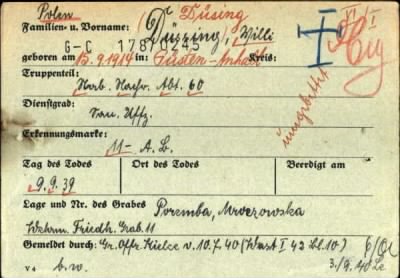 Polen Düsing
Familien- u. Vorname: Düsing, Willi
G-C 17870245
geboren am 15.9.1914 in: Güsten-Anhalt Kreis:
Truppenteil:
Harb. Nachr. Abt. 60
Dienstgrad:
San. Uffz.
Erkennungsmarke:
11- A. L.
Tag des Todes Ort des Todes Beerdigt am
9.9.39
Lage und Nr. des Grabes Poremba, Mrozowska
Wehrm. Friedh. Grab 11
Gemeldet durch: Gr. Offz. Kielce v. 10.7.40 (Wast I 42 Bl. 10)
v4 b.w. 3./9.40